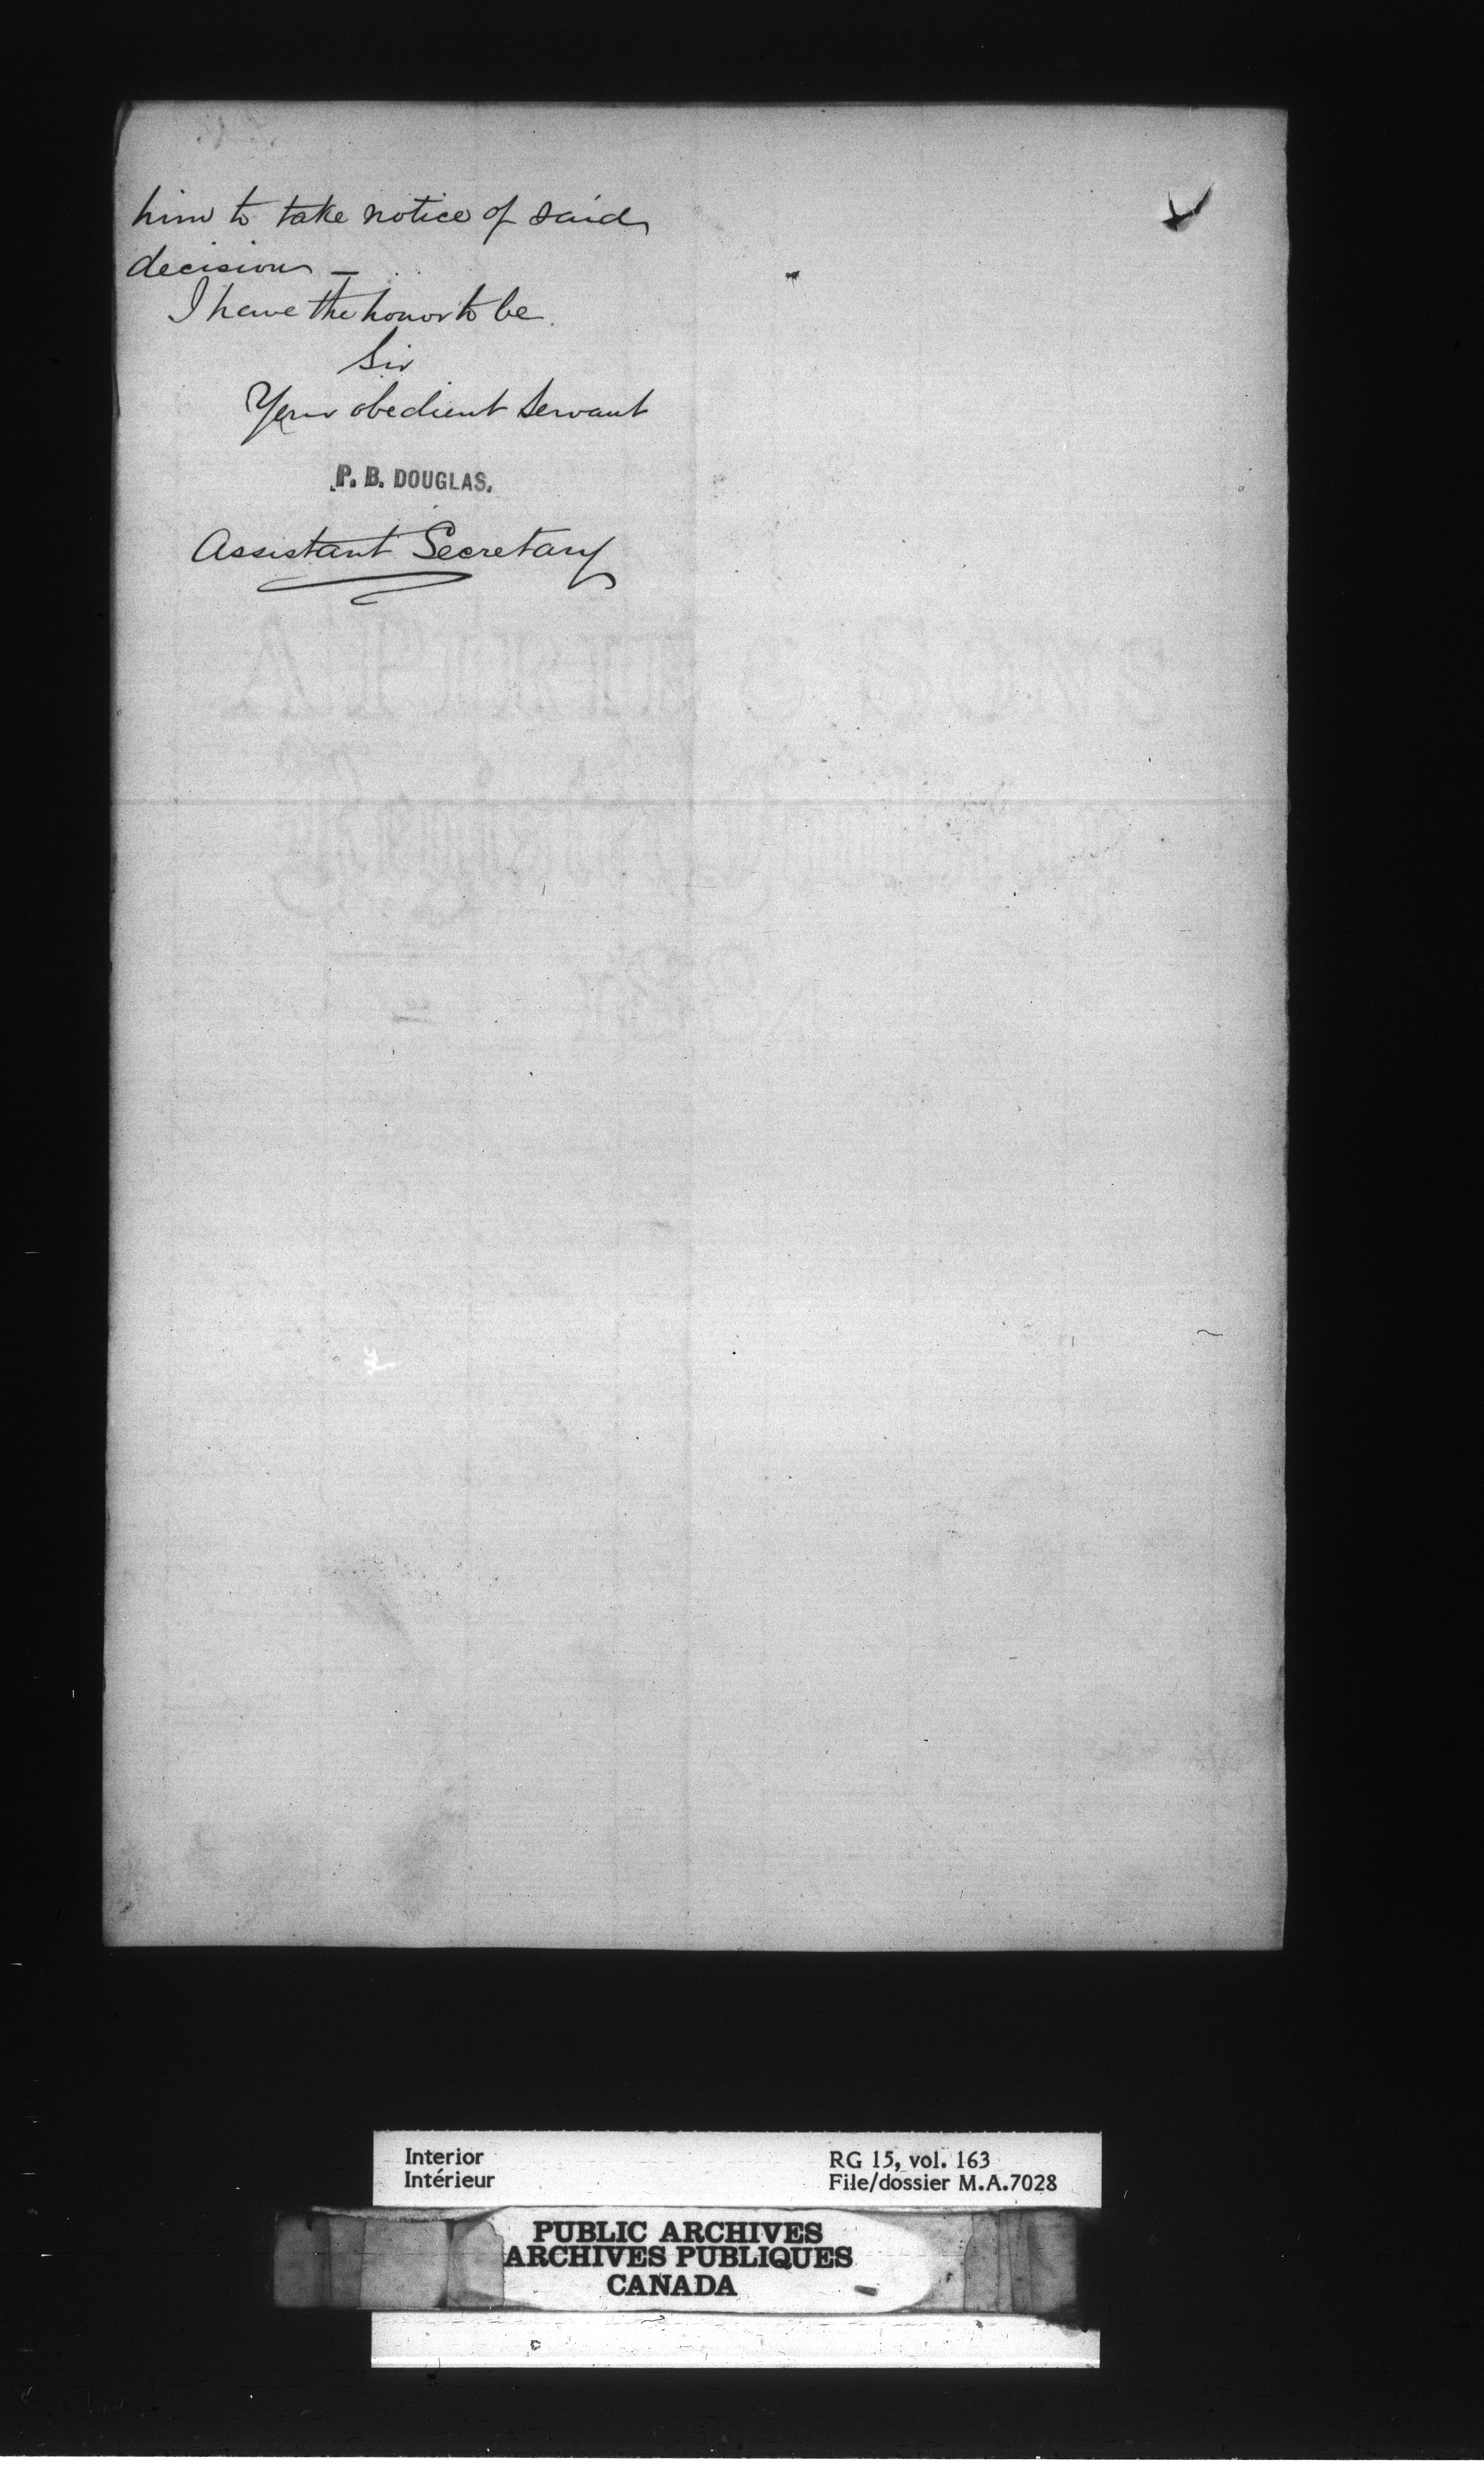 him to take notice of said
decision —
I have the honor to be
Sir
Your obedient servant
P. B. DOUGLAS.
Assistant Secretary
Interior
Intérieur
RG 15, vol. 163
File/dossier M.A.7028
PUBLIC ARCHIVES
ARCHIVES PUBLIQUES
CANADA